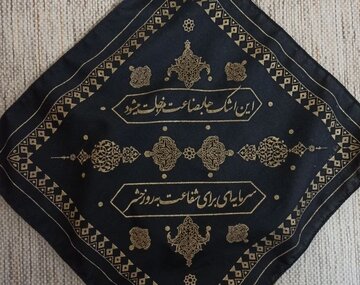 این اشک ها بضاعت میشود
سرمایه‌ای برای شفاعت به روز حشر